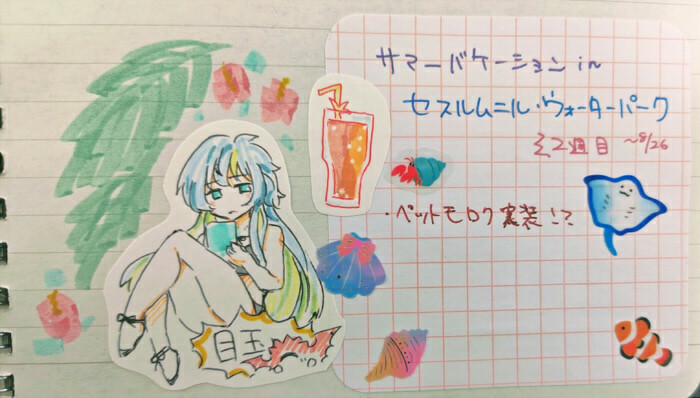 サマーバケーション in
セスルムニル・ヴォーターパーク
2週目 ~8/26
・ペットモロク実装!?
目玉